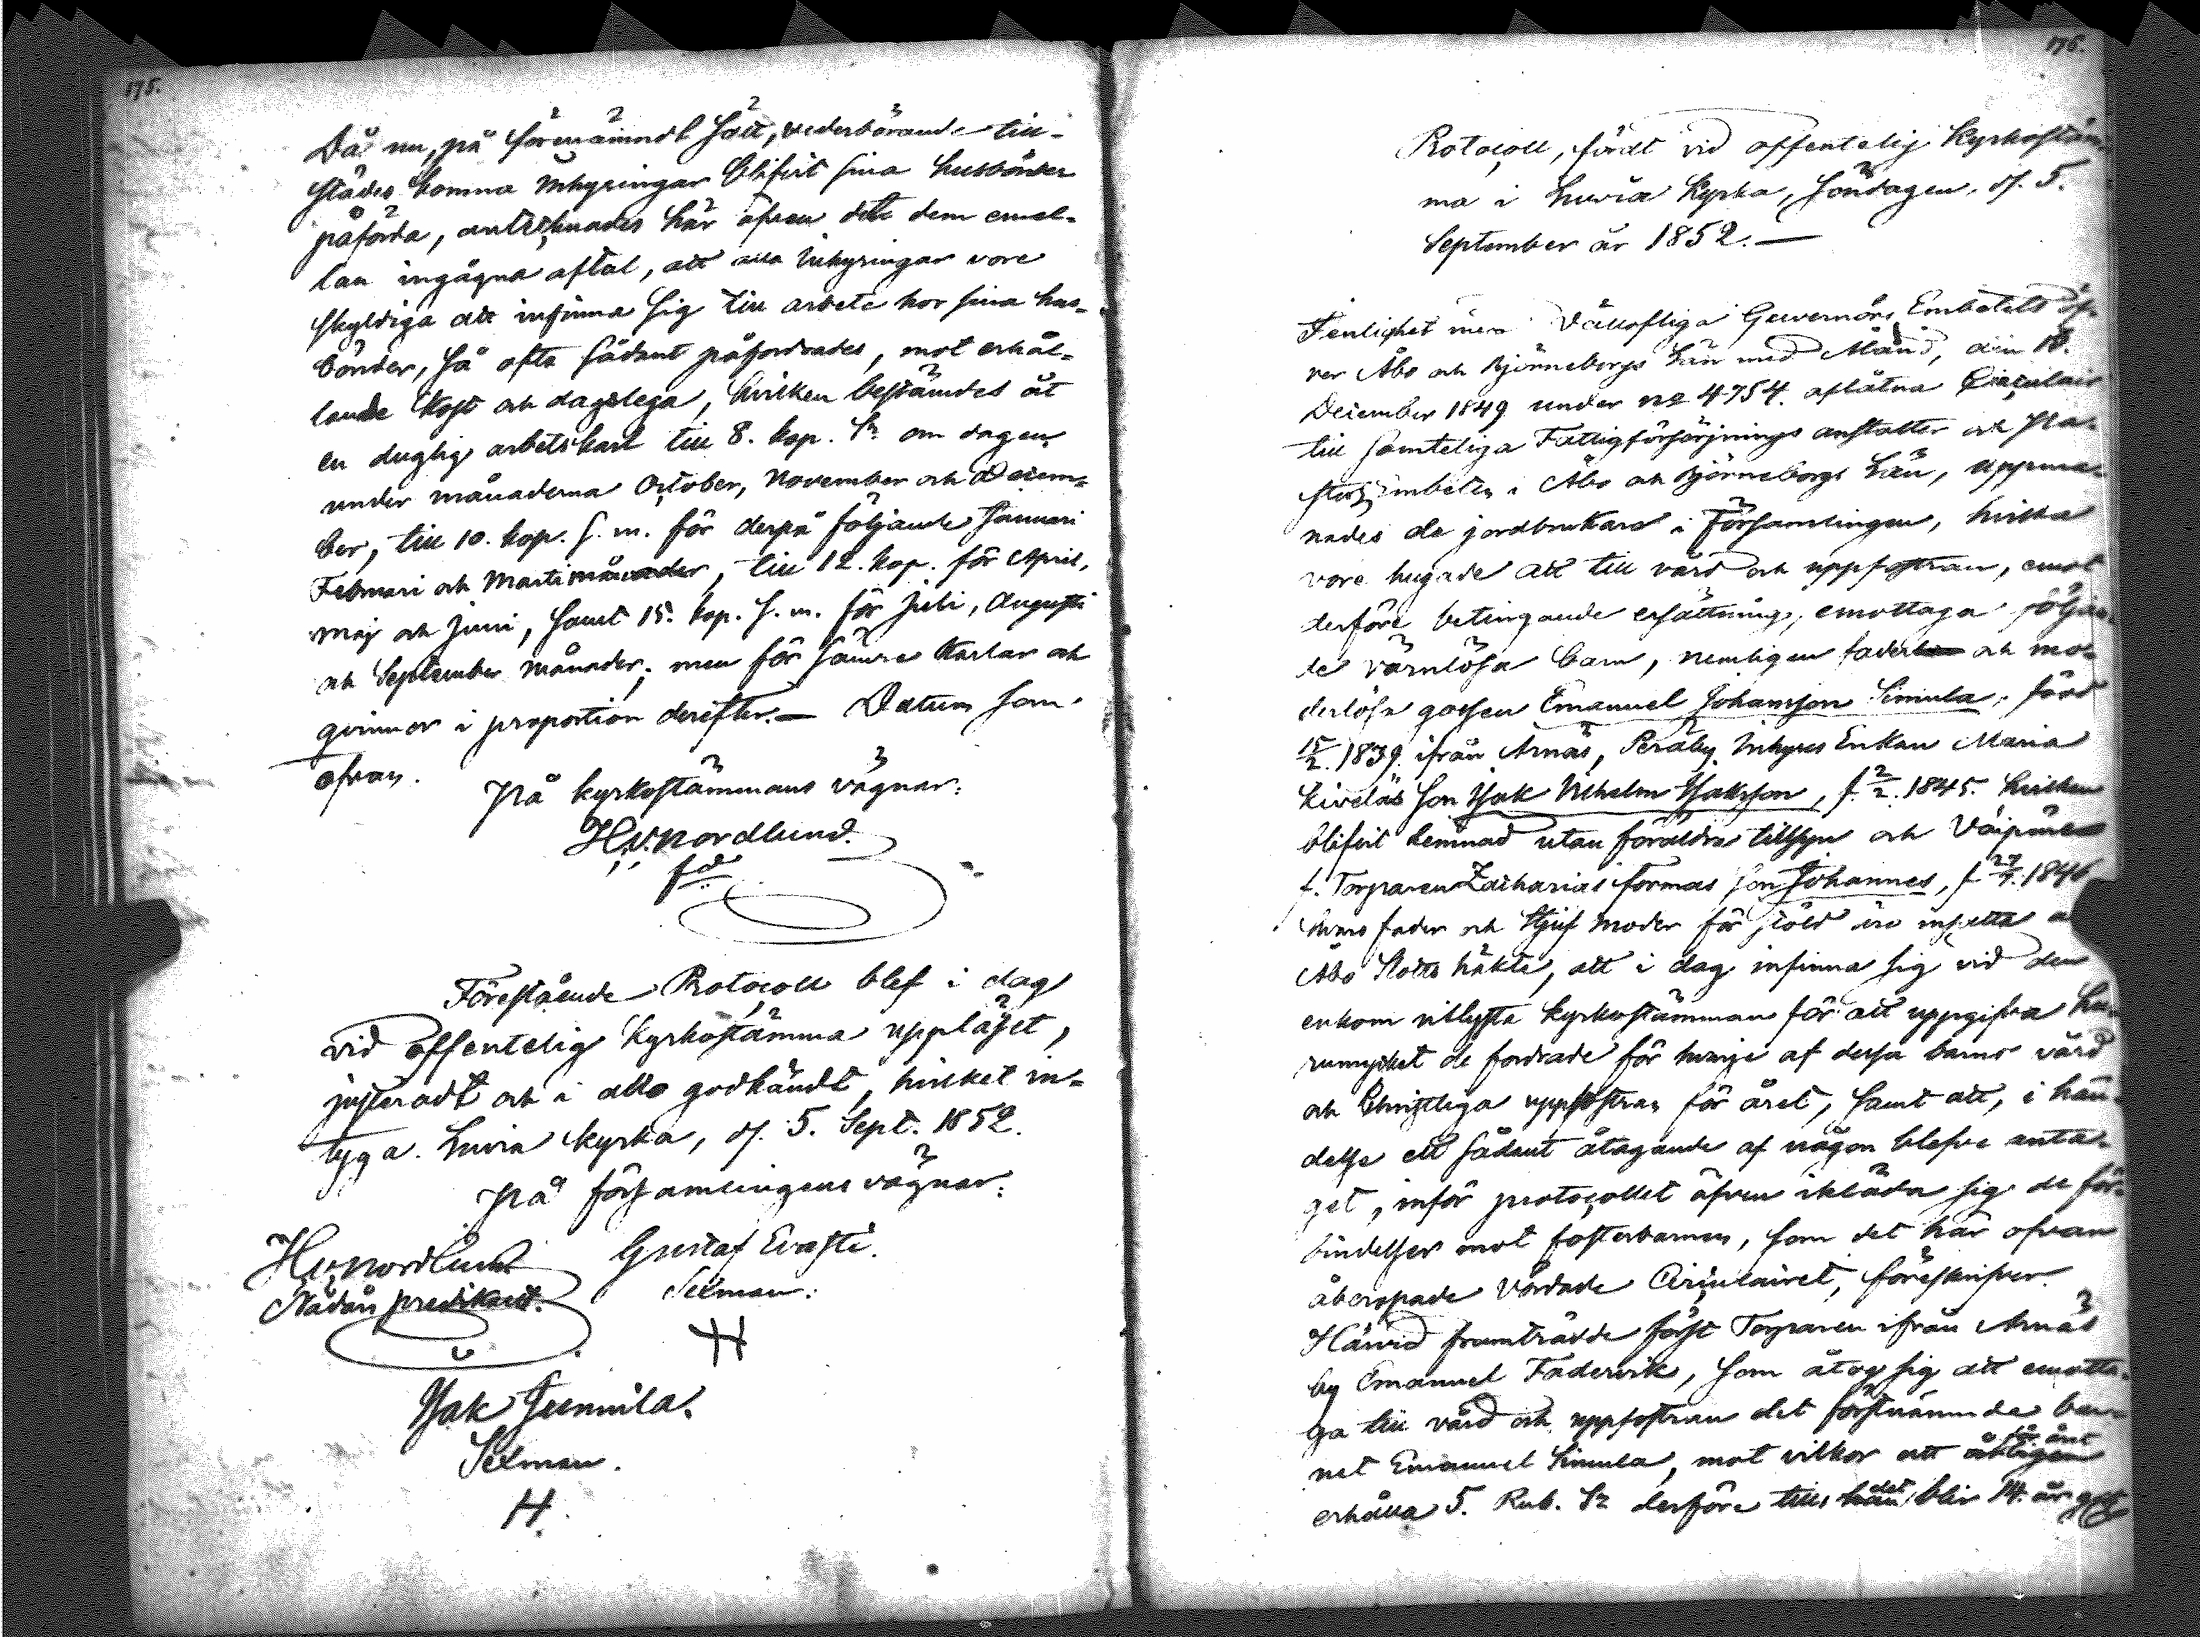 175.
Då nu, på förenämndt sätt, vederbörande till-
städes komna Inhysingar blifvit sina husbönder
påförda, antecknades här äfven det dem emel-
lan ingågna aftal, att alla Inhysingar vore
skyldiga att infinna sig till arbete hos sina hus-
bönder, så ofta sådant påfordrades, mot erhål-
lande kost och dagslega, hvilken bestämdes åt
en duglig arbetskarl till 8. kop. Sr om dagen,
under månaderna October, November och Decem-
ber, till 10. kop. s. m. för derpå följande Januari
Februari och Marti månader, till 12. kop. för April,
Maj och Juni, samt 15. kop. s. m. för Juli, Augusti
och September månader; men för sämre karlar och
qvinnor i proportion derefter.— Datum som
ofvan.
På kyrkostämmans vägnar:
H. v. Nordlund.
Förestående Protocoll blef i dag
vid offentelig Kyrkostämma uppläset,
justeradt och i allo godkändt, hvilket in-
tyga. Luvia kyrka, d. 5. Sept. 1852.
På församlingens vägnar:
H. v. Nordlund
Nådårs predikant.
Gustaf Evasti.
Sexman.
Isak Gunnila.
Sexman.
176.
Protocoll, fördt vid offentelig Kyrkostäm-
ma i Luvia Kyrka, Söndagen, d. 5.
September år 1852.—
I enlighet med Vällofliga Guvernörs Embetets öf-
ver Åbo och Björneborgs Län med Åland, den 18.
December 1849 under No 4754. aflåtna Circulair
till samteliga Fattigförsörjnings anstalter och Pa-
stors embeten i Åbo och Björneborgs Län, uppma-
nades de jordbrukare i Församlingen, hvilka
vore hugade att till vård och uppfostran, emot
derföre betingande ersättning, emottaga följan-
de värnlösa barn, nemligen fader och mo-
derlösa gossen Emanuel Johansson Simula, född
15/2. 1839. ifrån Arnäs, Peräby Inhyses Enkan Maria
Kiveläs son Isak Vilhelm Isaksson, f. 2/2. 1845. hvilken
blifvit lemnad utan föräldra tillsyn och
f. Torparen Zacharias Formas son Johannes, f. 1846
hvars fader och Stjuf moder för stöld äro insatta
Åbo Slotts häkte, att i dag infinna sig vid den
enkom utlysta kyrkostämman för att uppgifva hu-
rumycket de fordrade för hvarje af dessa barns vård
och Christliga uppfostran för året, samt att, i hän-
delse ett sådant åtagande af någon blefve anta-
get, inför protocollet äfven ikläda sig de för-
bindelser mot fosterbarnen, som det här ofvan
åberopade vördade Circulairet, föreskrifver.
Härvid framträdde först Torparen ifrån Arnäs
by Emanuel Fadervik, som åtog sig att emotta-
ga till vård och uppfostran det förstnämnde bar-
net Emanuel Simula, mot vilkor att årligen
för året
erhålla 5. Rub. Sr derföre tills det blir 14. år